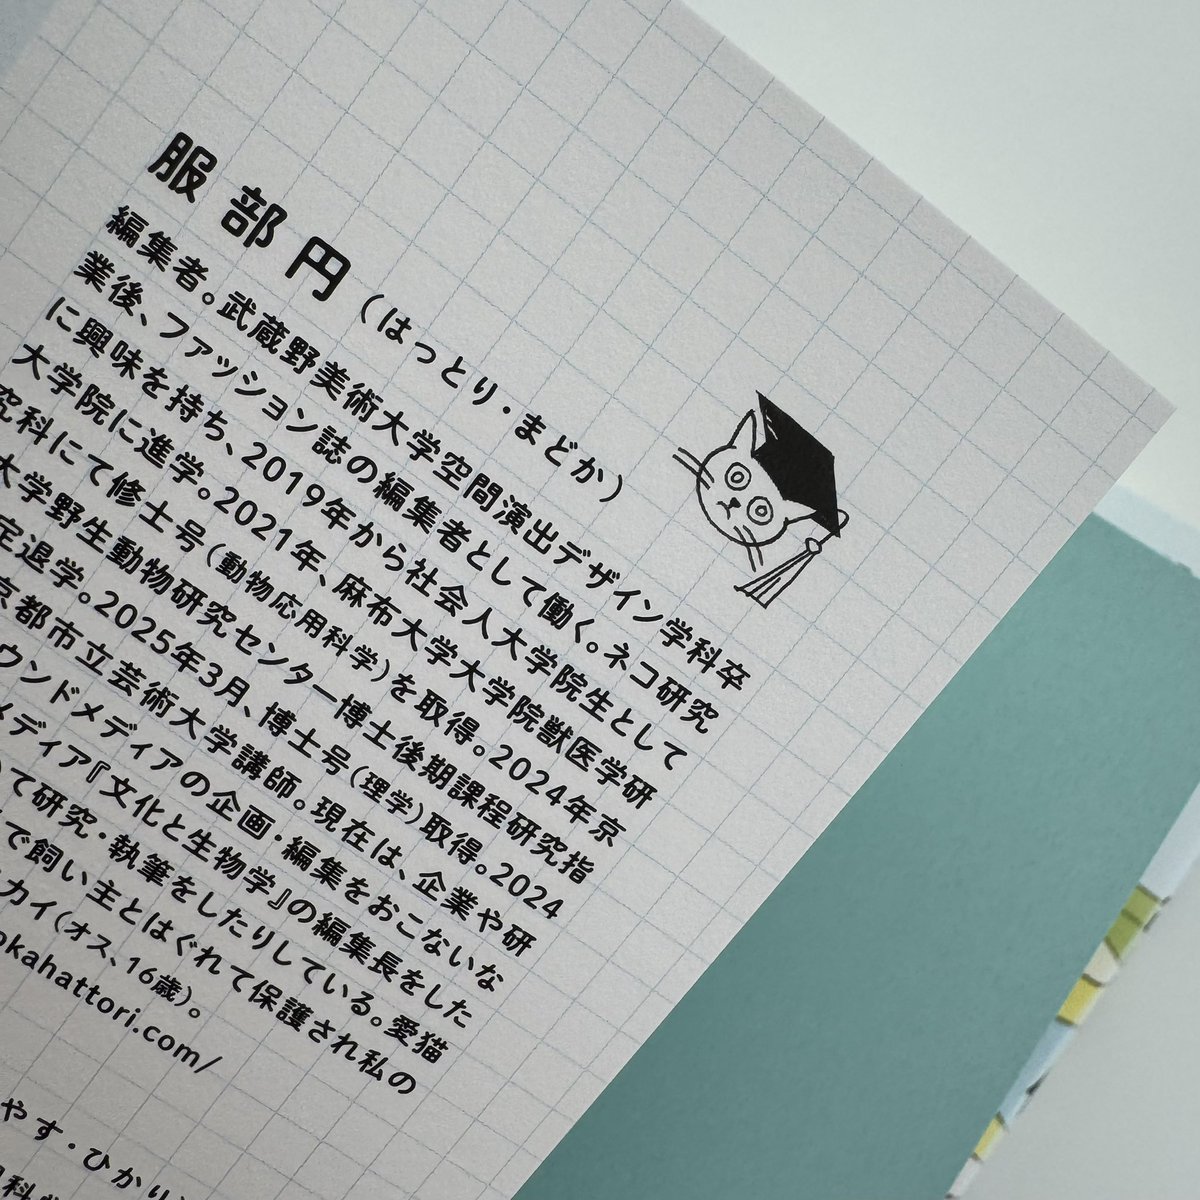 服部円（はっとり・まどか）
編集者。武蔵野美術大学空間演出デザイン学科卒
業後、ファッション誌の編集者として働く。ネコ研究
に興味を持ち、2019年から社会人大学院生として
大学院に進学。2021年、麻布大学大学院獣医学研
究科にて修士号（動物応用科学）を取得。2024年京
大学野生動物研究センター博士後期課程研究指
定退学。2025年3月、博士号（理学）取得。2024
京都市立芸術大学講師。現在は、企業や研
ウンドメディアの企画・編集をおこないな
メディア『文化と生物学』の編集長をした
て研究・執筆をしたりしている。愛猫
で飼い主とはぐれて保護され私の
カイ（オス、16歳）。
okahattori.com/
やす・ひかり